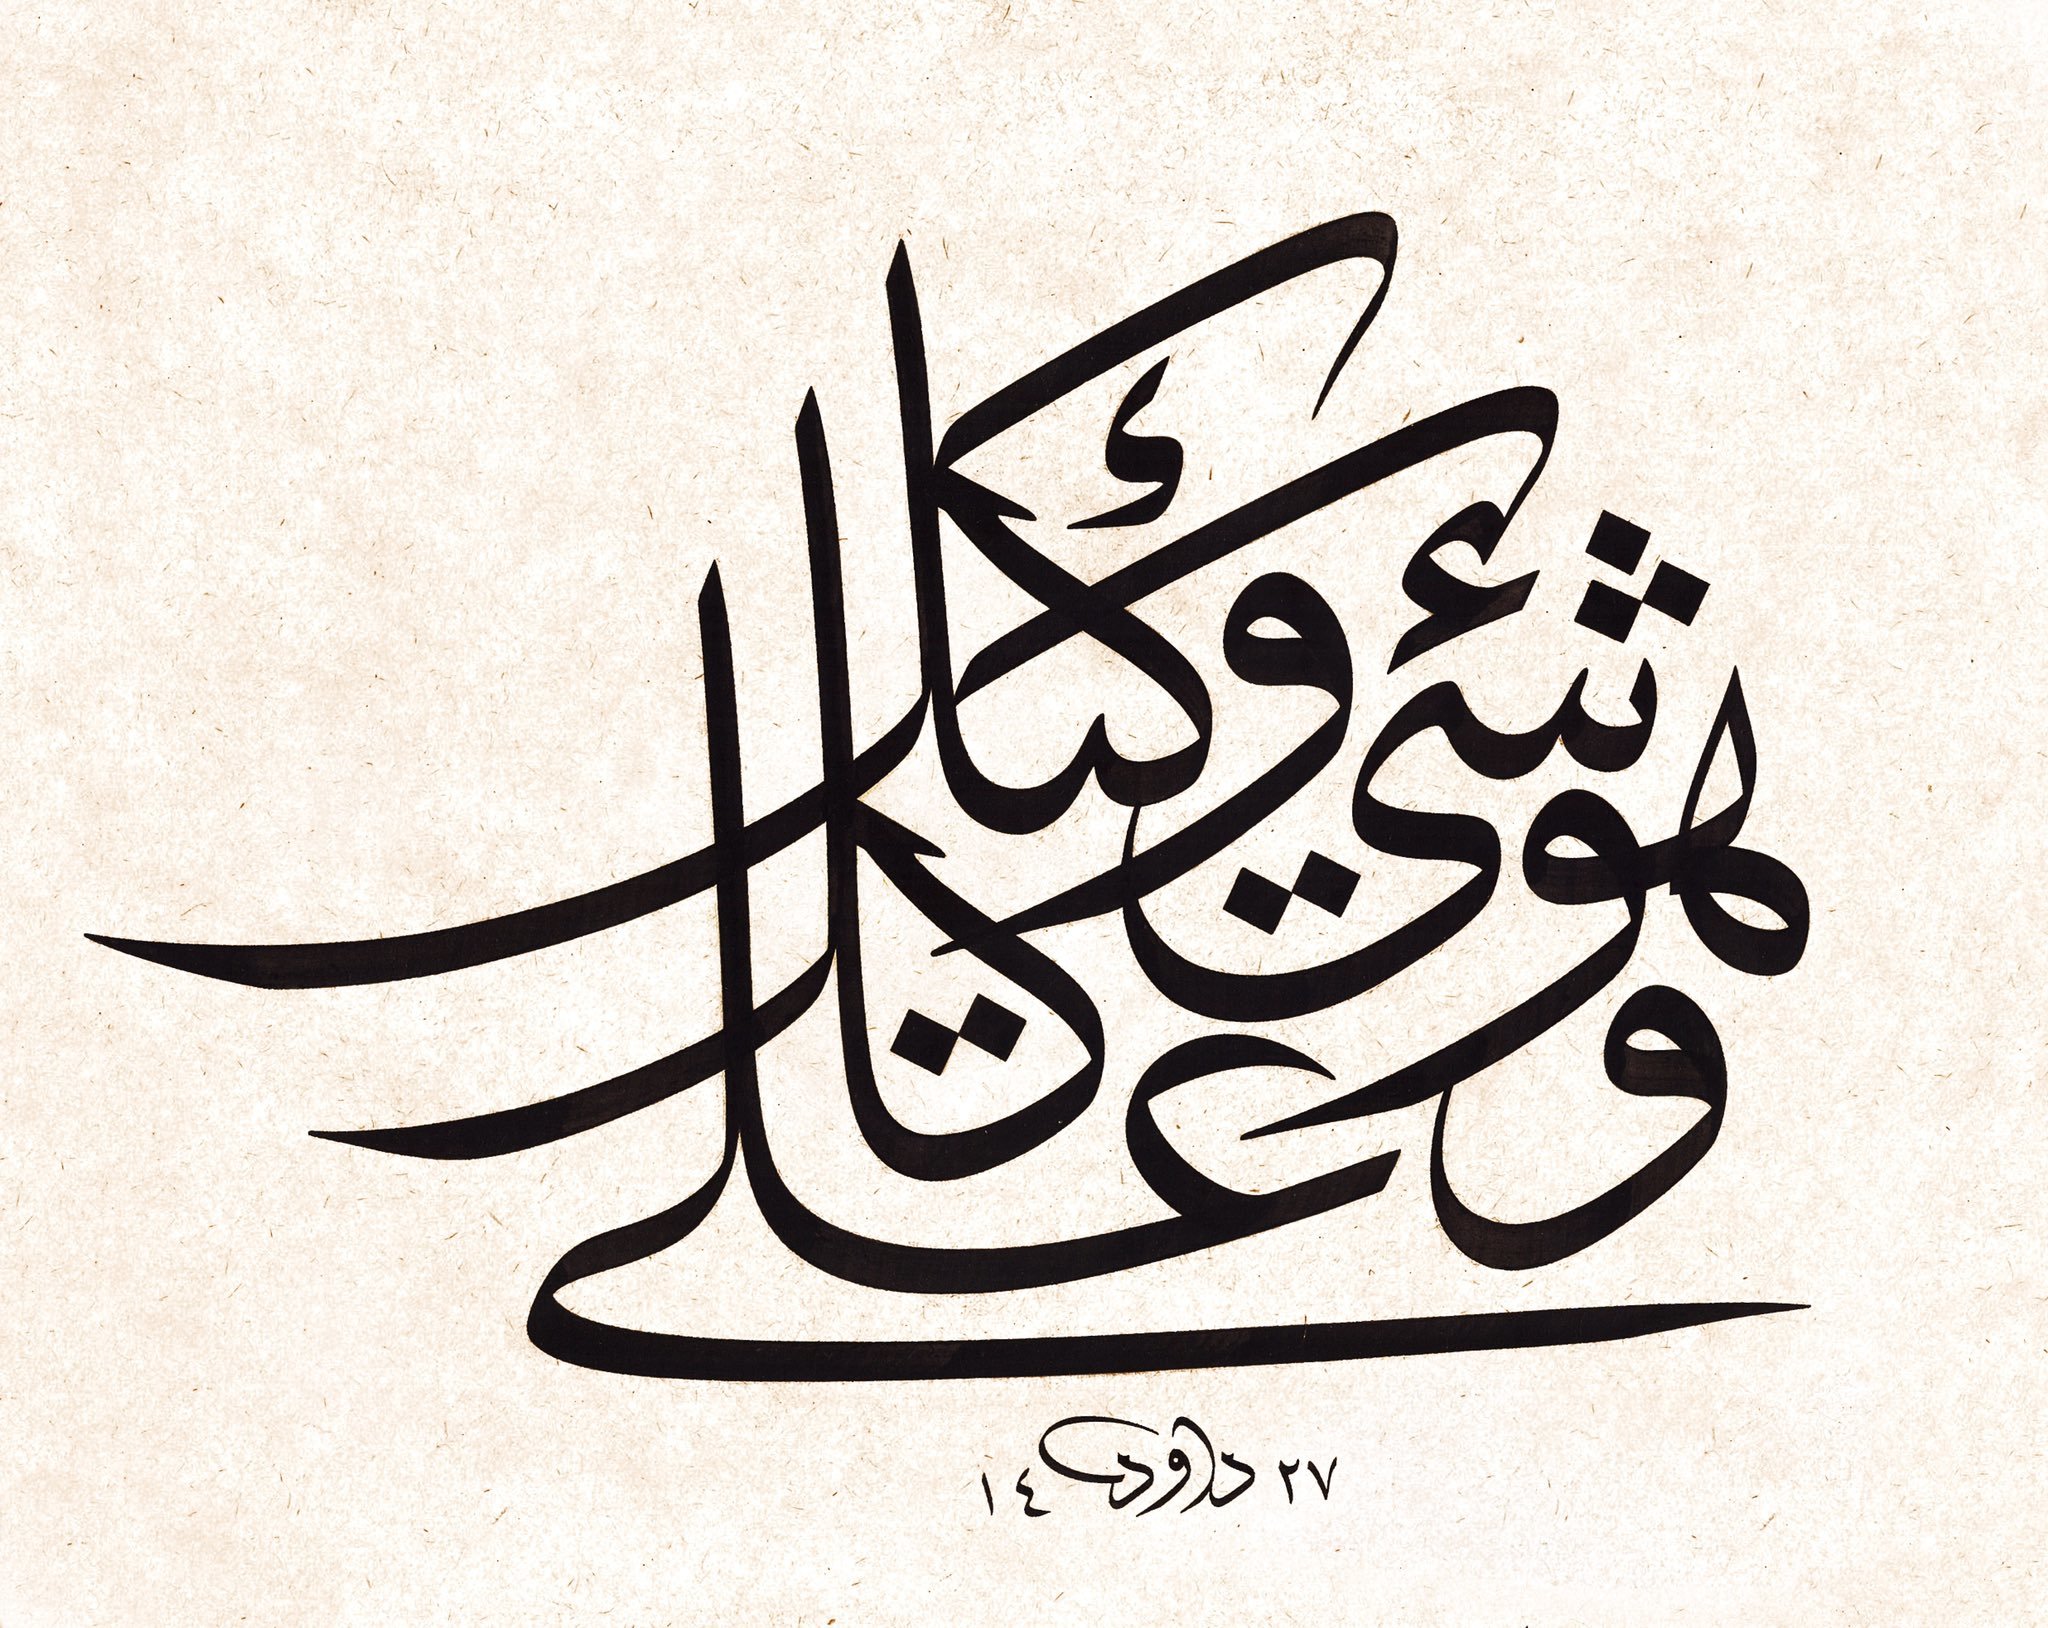 وهو على كل شيء وكيل
٢٧ داود ١٤